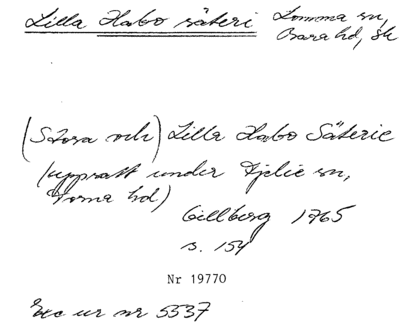 Lilla Habo säteri Lomma sn,
Bara hd, Sk
(Stora och) Lilla Habo Säterie
(uppratt under Fjelie sn,
Torna hd)
Gillberg 1765
s. 154
Nr 19770
Exc ur nr 5537